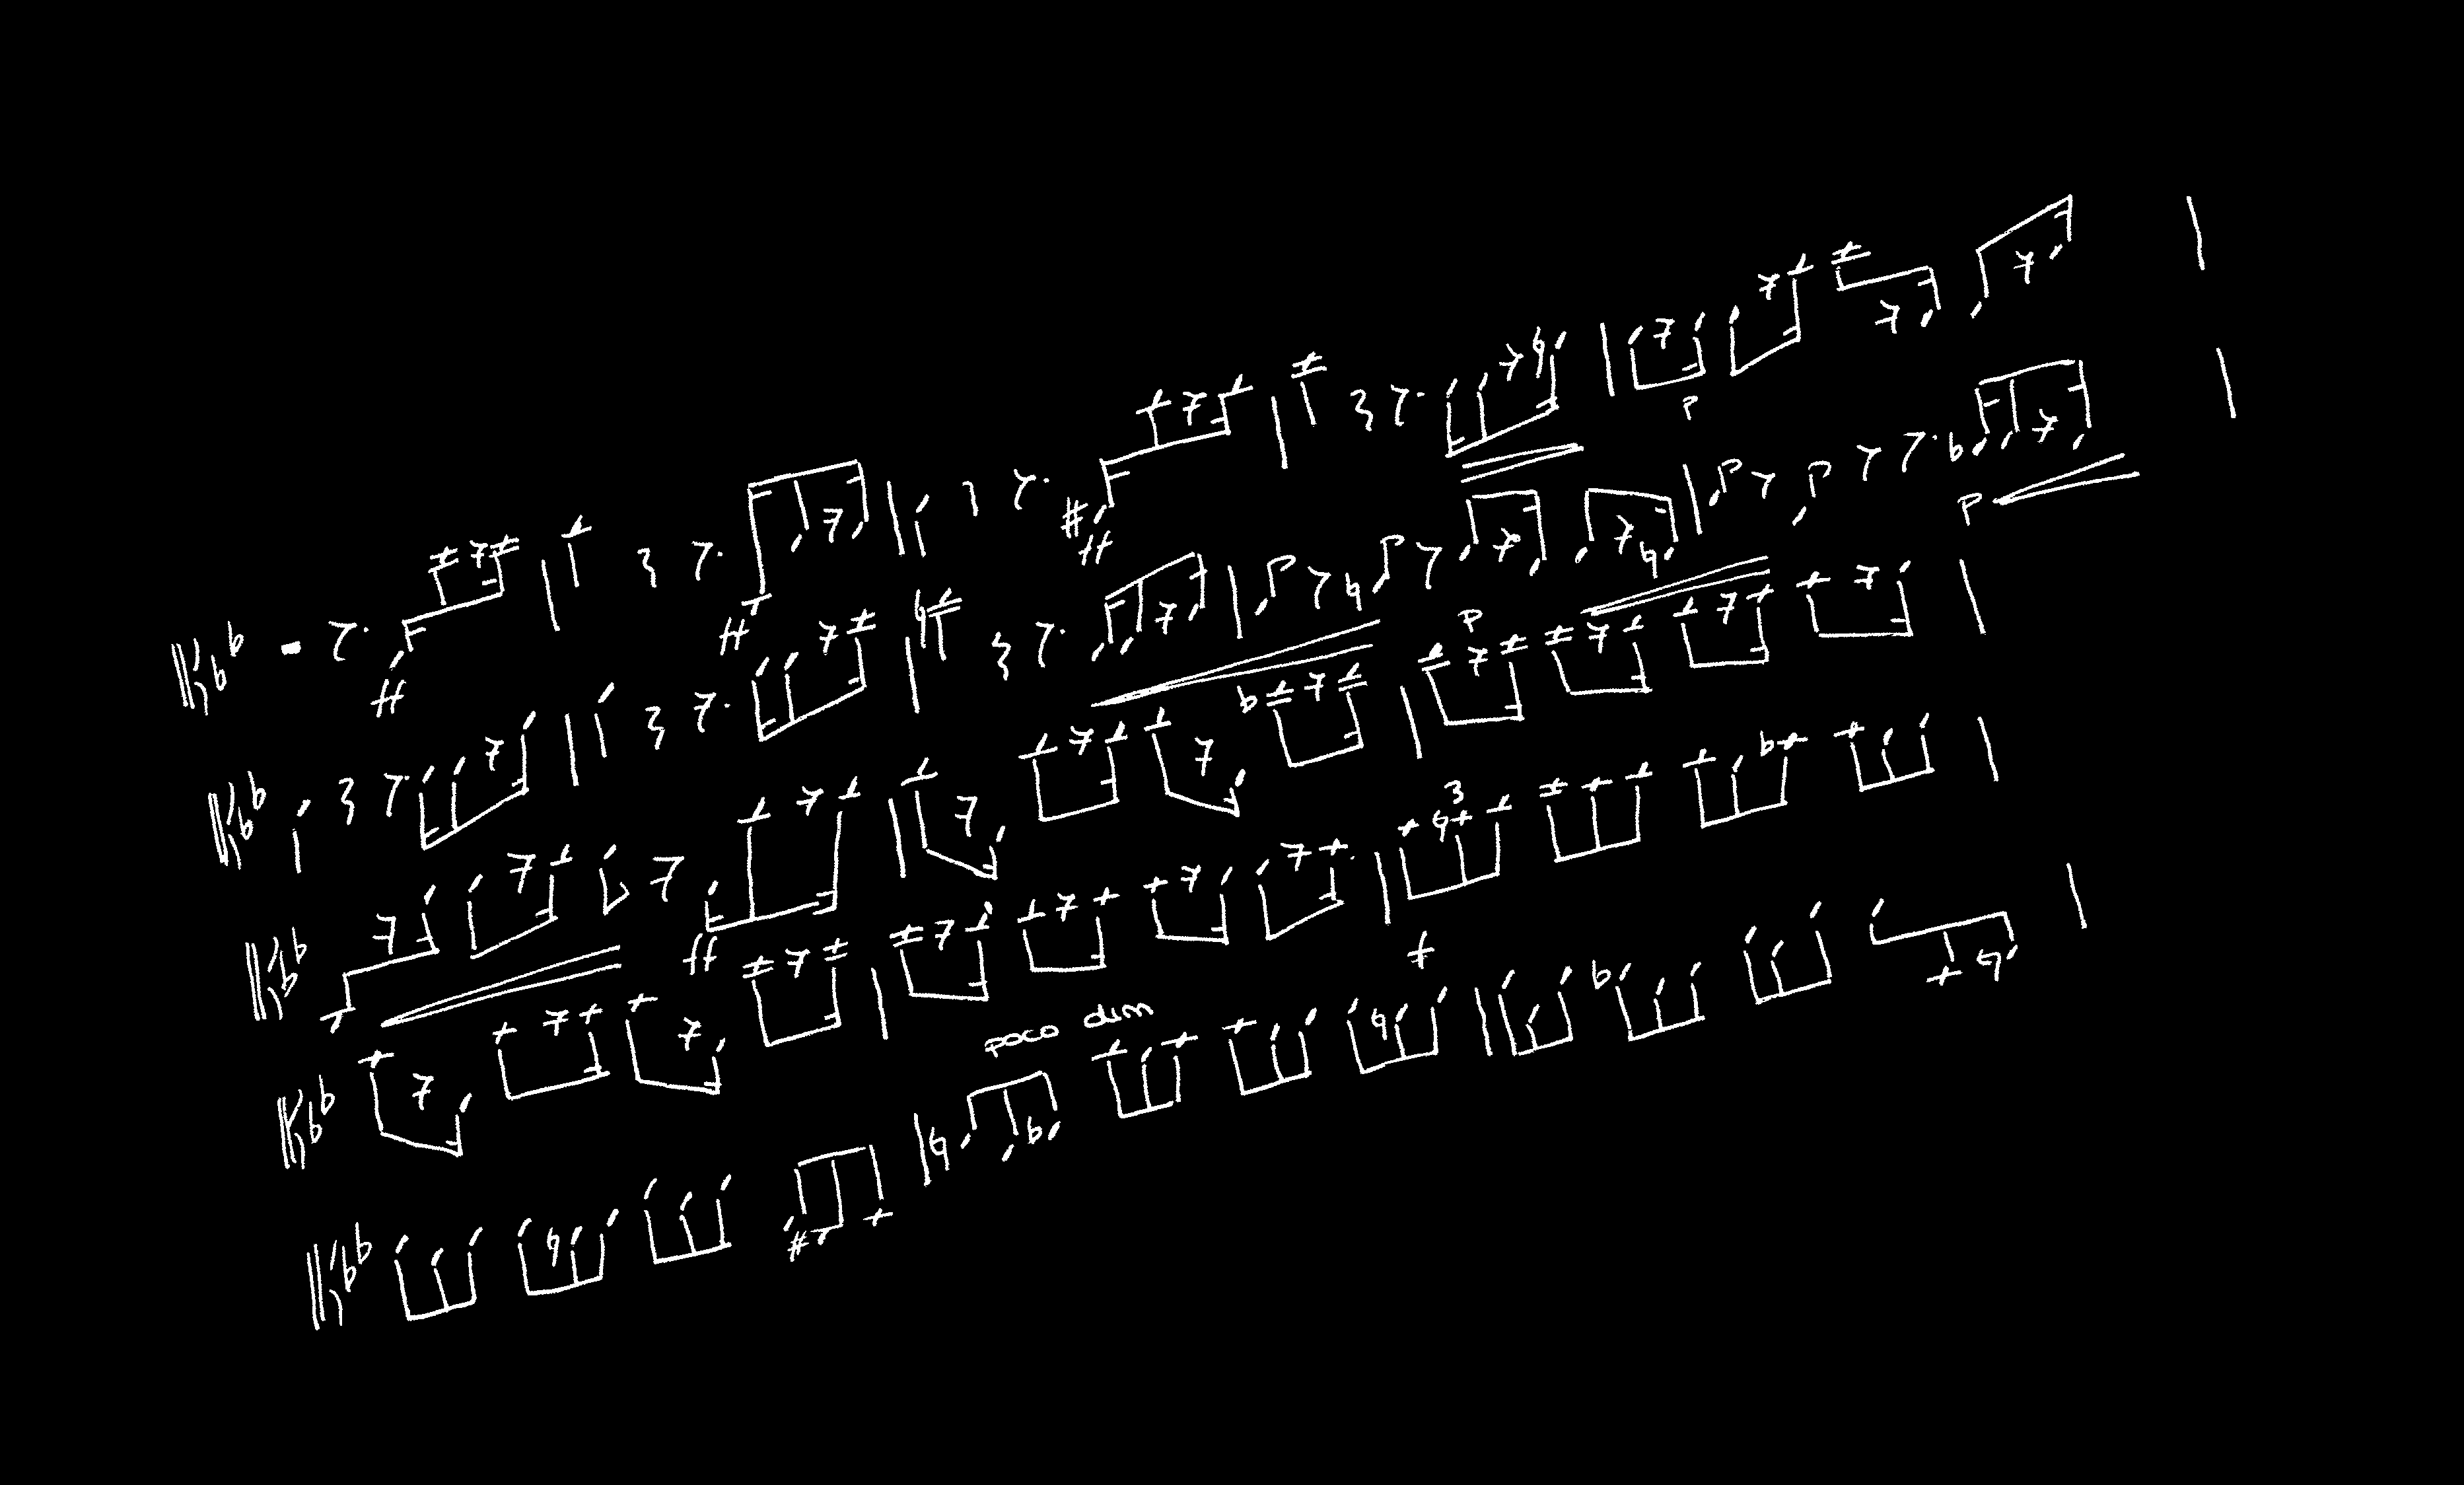 ff
ff
ff
p
p
p
ff
3
f
poco dim